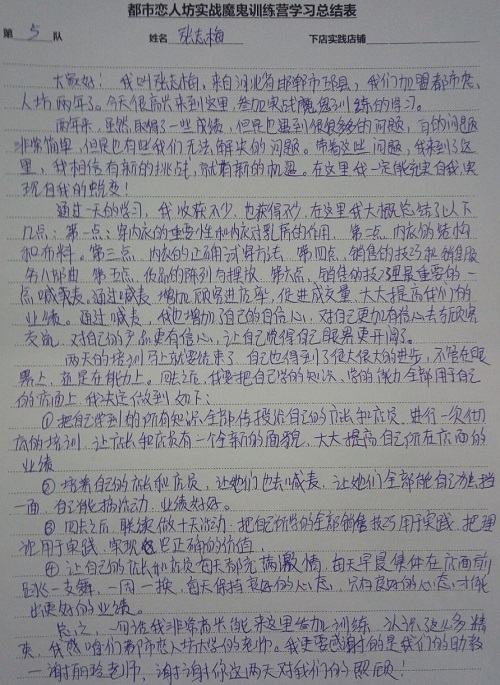 都市恋人坊实战魔鬼训练营学习总结表
第 5 队 姓名 张志梅 下店实践店铺
大家好！我叫张志梅，来自河北省邯郸市邱县，我们加盟都市恋
人坊两年了。今天很高兴来到这里，参加实战魔鬼训练的学习。
两年来，虽然取得了一些成绩，但是也遇到很多的问题，有的问题
非常简单，但是也有些我们无法解决的问题。带着这些问题，我来到了这
里，我相信有新的挑战，就有新的机遇。在这里我一定能充实自我，实
现自我的蜕变！
通过一天的学习，我收获不少，也获得不少，在这里我大概总结了以下
几点：第一点：穿内衣的重要性和内衣对乳房的作用。第二点 内衣的结构
和布料。第三点 内衣的正确试穿方法。第四点，销售的技巧和销售服
务八部曲 第五点，货品的陈列与摆放。第六点，销售的技巧里最重要的一
点 喊麦。通过喊麦 增加顾客进店率，促进成交量，大大提高我们的
业绩。通过喊麦，我也增加了自己的自信心，对自己更加有信心去与顾客
交流，对自己的产品更有信心，让自己觉得自己眼界更开阔了。
两天的培训马上就要结束了，自己也得到了很大很大的进步，不管在眼
界上，就是在能力上。回去之后，我要把自己学的知识，学的能力全部用于自己
的店面上，我决定做到如下：
① 把自己学到的所有知识，全部传授给自己的店长和店员，进行一次彻
底的培训，让店长和店员有一个全新的面貌，大大提高自己所在店面的
业绩
② 培养自己的店长和店员，让她们也去喊麦，让她们全部能自己独挡
一面，自己能搞活动，业绩越好。
③ 回去之后，联续做十天活动，把自己所学的全部销售技巧用于实践，把理
论用于实践，实现它正确的价值，
④ 让自己的店长和店员每天都充满激情，每天早晨集体在店面前
跳一支舞，一周一换，每天保持良好的心态，只有良好的心态，才能
出更好的业绩。
总之，一句话我非常高兴能来这里参加训练，认识这么多精
英，我感谢咱们都市恋人坊大学的老师。我更要感谢的是我们的助教
— 谢丽玲老师，谢谢你这两天对我们的照顾！